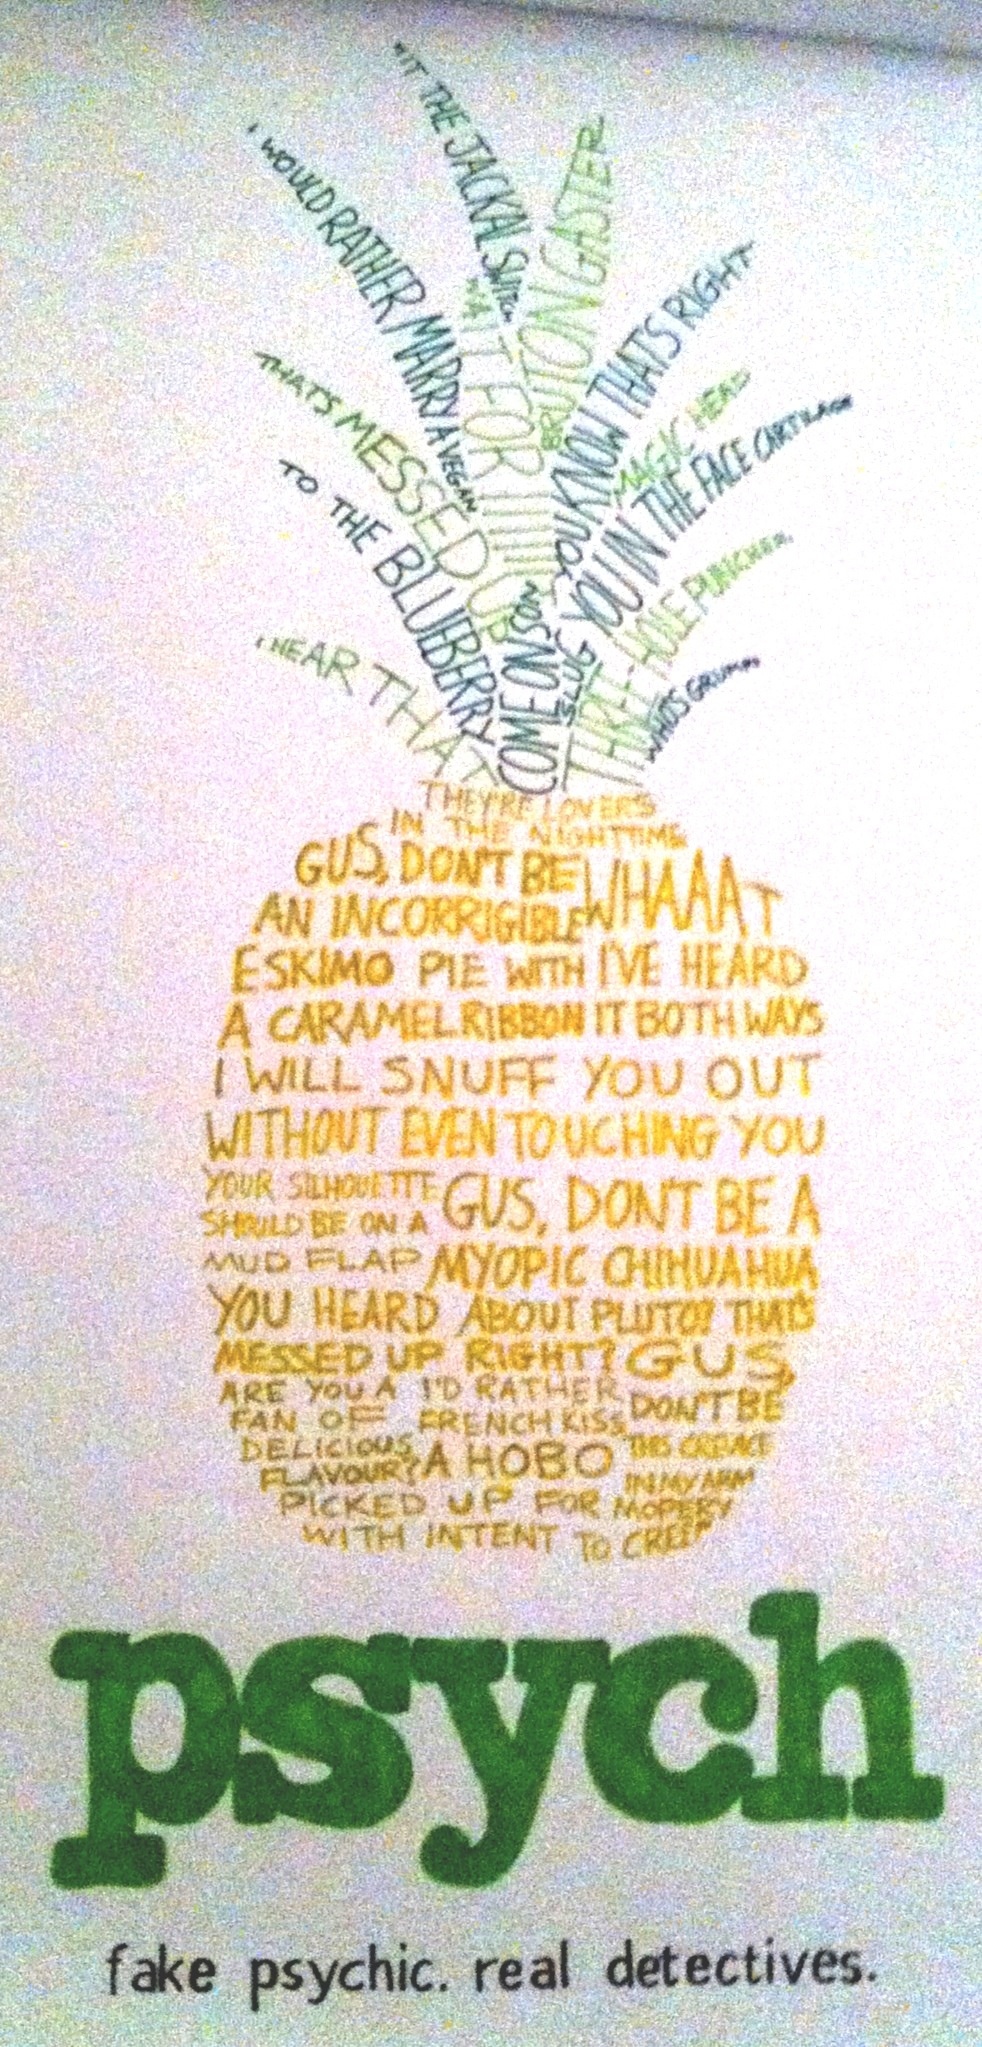 HIT THE JACKAL SWITCH
BRUTON GASTER
I WOULD RATHER MARRY A VEGAN
WAIT FOR IIIIIIT
YOU KNOW THATS RIGHT
THATS MESSED UP
MAGIC HEAD
SLUG YOU IN THE FACE CARTILAGE
TO THE BLUEBERRY
COME ON SON
THREE-HOLE PUNCHER
I HEAR THAT
THEY'RE LOVERS
IN THE NIGHTTIME
GUS, DON'T BE
AN INCORRIGIBLE
ESKIMO PIE WITH
A CARAMEL RIBBON
WHAAAT
I'VE HEARD
IT BOTH WAYS
I WILL SNUFF YOU OUT
WITHOUT EVEN TOUCHING YOU
YOUR SILHOUETTE
SHOULD BE ON A
MUD FLAP
GUS, DON'T BE A
MYOPIC CHIHUAHUA
YOU HEARD ABOUT PLUTO? THATS
MESSED UP RIGHT?
ARE YOU A
FAN OF
DELICIOUS
FLAVOUR?
I'D RATHER
FRENCH KISS
A HOBO
GUS,
DON'T BE
THIS CREVACE
IN MY ARM
PICKED UP FOR MOPERY
WITH INTENT TO CREEP
psych
fake psychic. real detectives.